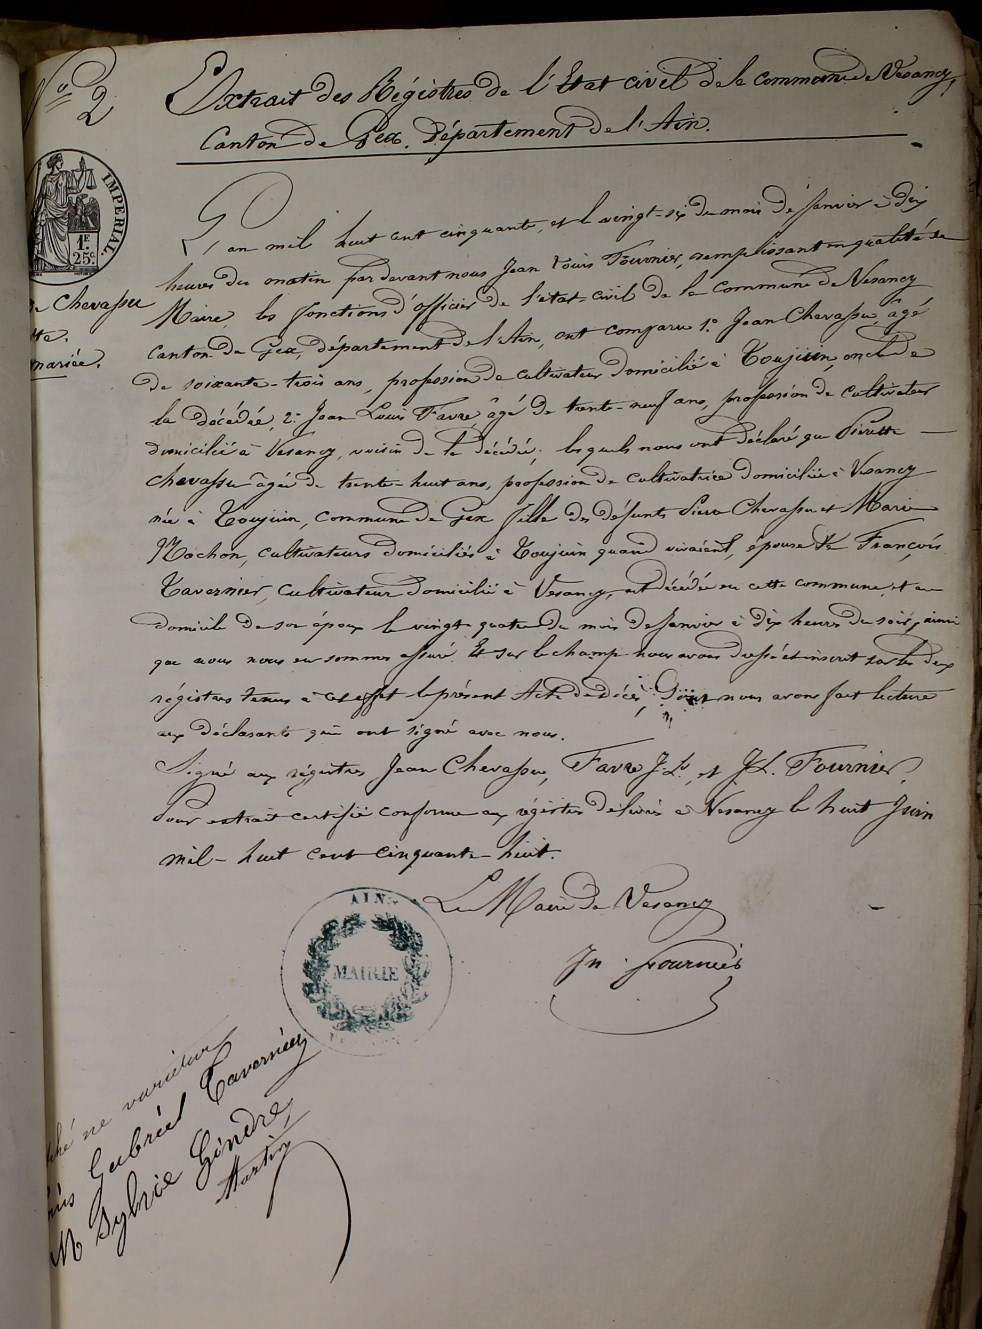 N° 2
Extrait des Régistres de l'Etat civil de la commune de Vesancy,
Canton de Gex. Département de l'Ain.
IMPERIAL.
1F.
25c
Chevassu
tte.
mariée.
L'an mil huit cent cinquante, et le vingt-six du mois de Janvier à dix
heures du matin pardevant nous Jean Louis Fournier, remplissant en qualité de
Maire, les fonctions d'officier de l'état-civil de la commune de Vesancy
Canton de Gex, département de l'Ain, ont comparu 1° Jean Chevassu, âgé
de soixante-trois ans, profession de cultivateur domicilié à Toujuin, oncle de
la décédée, 2° Jean Louis Favre, âgé de trente-neuf ans, profession de cultivateur
domicilié à Vesancy, voisin de la décédé, lesquels nous ont déclaré que Pierrette
Chevassu âgée de trente-huit ans, profession de cultivatrice domiciliée à Vesancy
née à Toujuin, commune de Gex fille des défunts Pierre Chevassu et Marie
Machon, cultivateurs domiciliés à Toujuin quand vivaient, épouse de François
Tavernier, cultivateur domicilié à Vesancy, est décédée en cette commune, et au
domicile de son époux le vingt-quatre du mois de Janvier à dix heures du soir, ainsi
que nous nous en sommes assuré. Et sur le champ nous avons dressé et inscrit sur les deux
régistres tenus à cet effet le présent Acte de décès, dont nous avons fait lecture
aux déclarants qui ont signé avec nous.
Signé aux régistres Jean Chevassu, Favre J. Ls. et J L. Fournier.
Pour extrait certifié conforme aux régistres délivré à Vesancy le huit Juin
mil-huit cent cinquante-huit.
Le Maire de Vesancy
Jn. Fournier
AIN
MAIRIE
ne varietur
Gabriel Tavernier
M Sylvie Gindre,
Martin